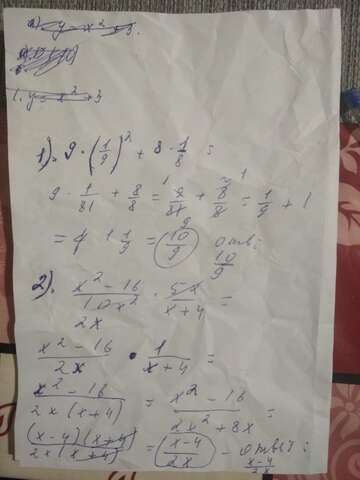 a) y = x² + 3.
1. y = x² + 3
1). 9 · (1/9)² + 8 · 1/8 =
9 · 1/81 + 8/8 = 9/81 + 8/8 = 1/9 + 1
= 1 1/9 = 10/9 ответ 10/9
2). x² - 16 / 10x² · 5x / x + 4 =
2x
x² - 16 / 2x · 1 / x + 4 =
x² - 16 / 2x(x + 4) = x² - 16 / 2x² + 8x =
(x - 4)(x + 4) / 2x(x + 4) = x - 4 / 2x - ответ: x - 4 / 2x